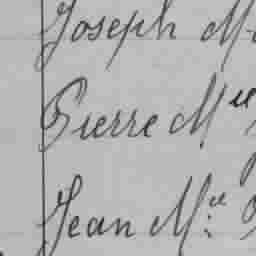 Joseph M
Pierre Mie
Jean M:e